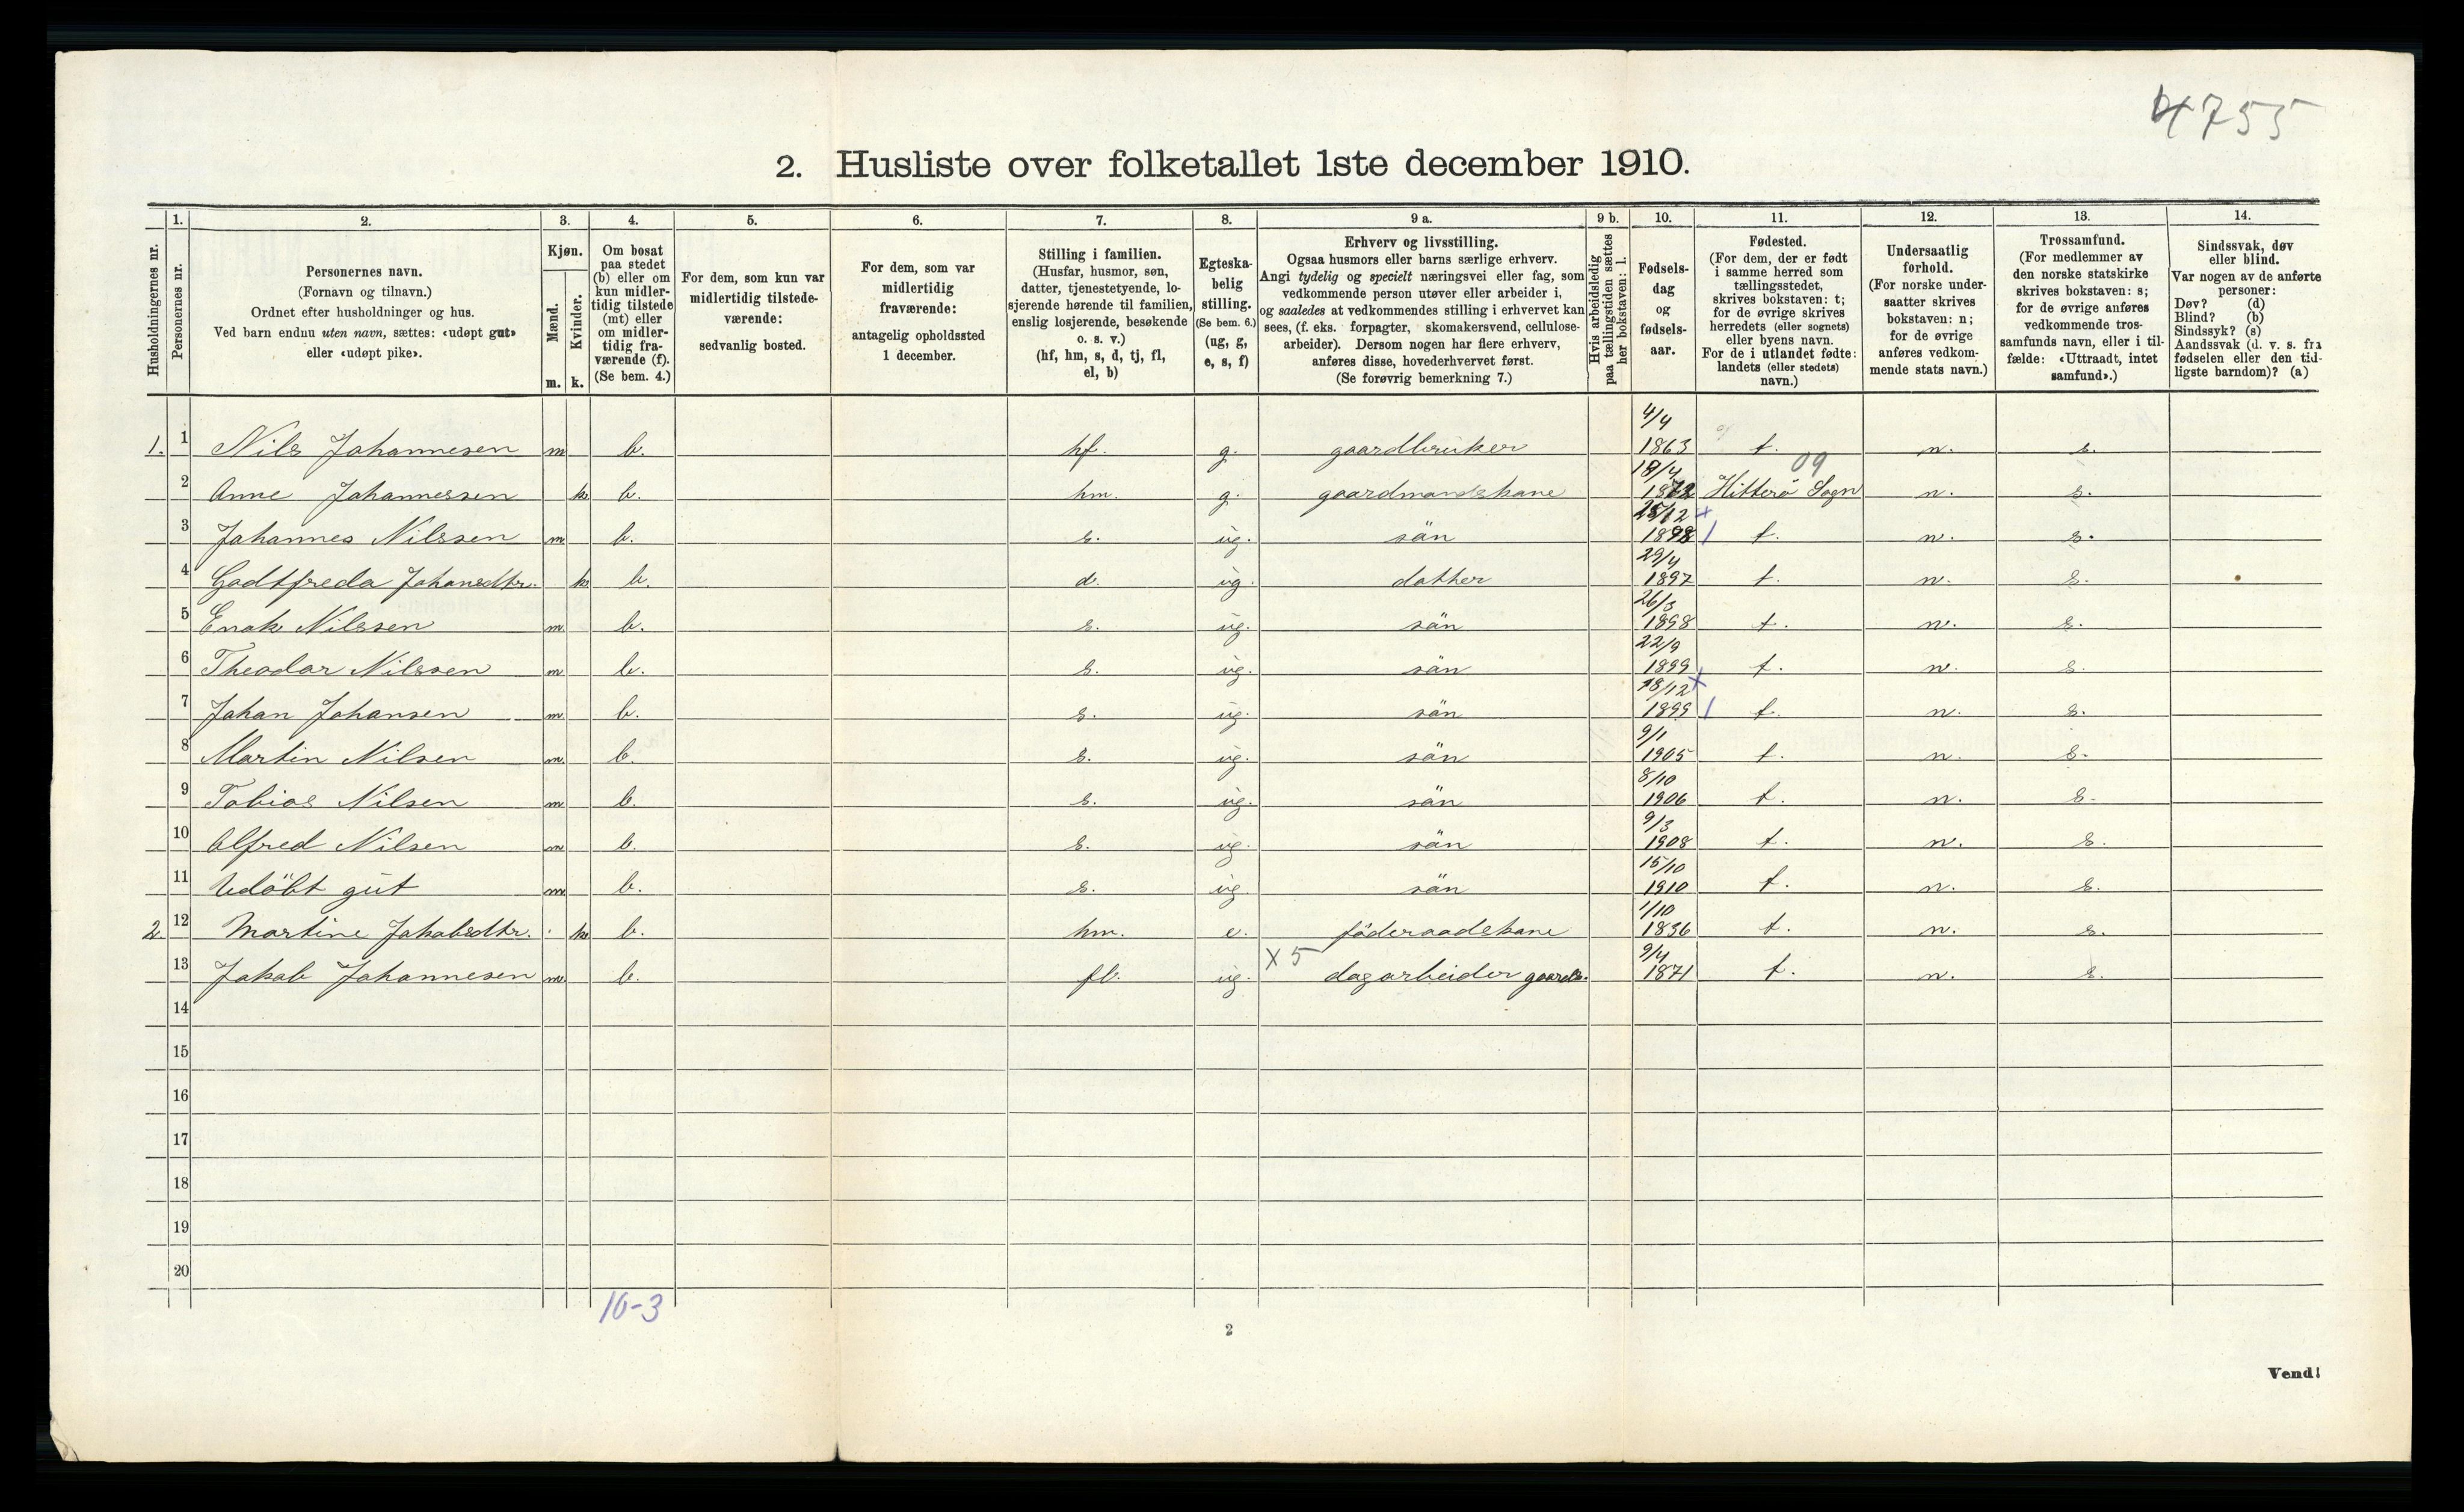 4755
2. Husliste over folketallet 1ste december 1910.
Husholdningernes nr.
1. Personernes nr.
2. Personernes navn.
(Fornavn og tilnavn.)
Ordnet efter husholdninger og hus.
Ved barn endnu uten navn, sættes: «udøpt gut»
eller «udøpt pike».
3. Kjøn.
Mænd. m.
Kvinder. k.
4. Om bosat
paa stedet
(b) eller om
kun midler-
tidig tilstede
(mt) eller
om midler-
tidig fra-
værende (f).
(Se bem. 4.)
5. For dem, som kun var
midlertidig tilstede-
værende:
sedvanlig bosted.
6. For dem, som var
midlertidig
fraværende:
antagelig opholdssted
1 december.
7. Stilling i familien.
(Husfar, husmor, søn,
datter, tjenestetyende, lo-
sjerende hørende til familien,
enslig losjerende, besøkende
o. s. v.)
(hf, hm, s, d, tj, fl,
el, b)
8. Egteska-
belig
stilling.
(Se bem. 6.)
(ug, g,
e, s, f)
9 a. Erhverv og livsstilling.
Ogsaa husmors eller barns særlige erhverv.
Angi tydelig og specielt næringsvei eller fag, som
vedkommende person utøver eller arbeider i,
og saaledes at vedkommendes stilling i erhvervet kan
sees, (f. eks. forpagter, skomakersvend, cellulose-
arbeider). Dersom nogen har flere erhverv,
anføres disse, hovederhvervet først.
(Se forøvrig bemerkning 7.)
9 b. Hvis arbeidsledig
paa tællingstiden sættes
her bokstaven: l.
10. Fødsels-
dag
og
fødsels-
aar.
11. Fødested.
(For dem, der er født
i samme herred som
tællingsstedet,
skrives bokstaven: t;
for de øvrige skrives
herredets (eller sognets)
eller byens navn.
For de i utlandet fødte:
landets (eller stedets)
navn.)
12. Undersaatlig
forhold.
(For norske under-
saatter skrives
bokstaven: n;
for de øvrige
anføres vedkom-
mende stats navn.)
13. Trossamfund.
(For medlemmer av
den norske statskirke
skrives bokstaven: s;
for de øvrige anføres
vedkommende tros-
samfunds navn, eller i til-
fælde: «Uttraadt, intet
samfund».)
14. Sindssvak, døv
eller blind.
Var nogen av de anførte
personer:
Døv? (d)
Blind? (b)
Sindssyk? (s)
Aandssvak (d. v. s. fra
fødselen eller den tid-
ligste barndom)? (a)
1. 1 Nils Johannesen m b. hf. g. gaardbruker 4/4 1863 t. n. s.
2 Anne Johannessen k b. hm. g. gaardmandskone 1872 Hitterö Sogn 09 n. s.
3 Johannes Nilssen m b. s. ug. sön 25/12 1898 t. n. s.
4 Godtfreda Johansdtr. k b. d. ug. dotter 29/4 1897 t. n. s.
5 Enok Nilssen m b. s. ug. sön 26/3 1898 t. n. s.
6 Theodor Nilssen m b. s. ug. sön 22/9 1899 t. n. s.
7 Johan Johansen m b. s. ug. sön 18/12 1899 t. n. s.
8 Martin Nilsen m b. s. ug. sön 9/1 1905 t. n. s.
9 Tobias Nilsen m b. s. ug. sön 8/10 1906 t. n. s.
10 Alfred Nilsen m b. s. ug. sön 9/3 1908 t. n. s.
11 Udöbt gut m b. s. ug. sön 15/10 1910 t. n. s.
2. 12 Martine Jakobsdtr. k b. hm. e. föderaadskone 1/10 1836 t. n. s.
13 Jakob Johannesen m b. fl. ug. X 5 dagarbeider gaards. 9/4 1871 t. n. s.
14
15
16
17
18
19
20
10-3
2
Vend!